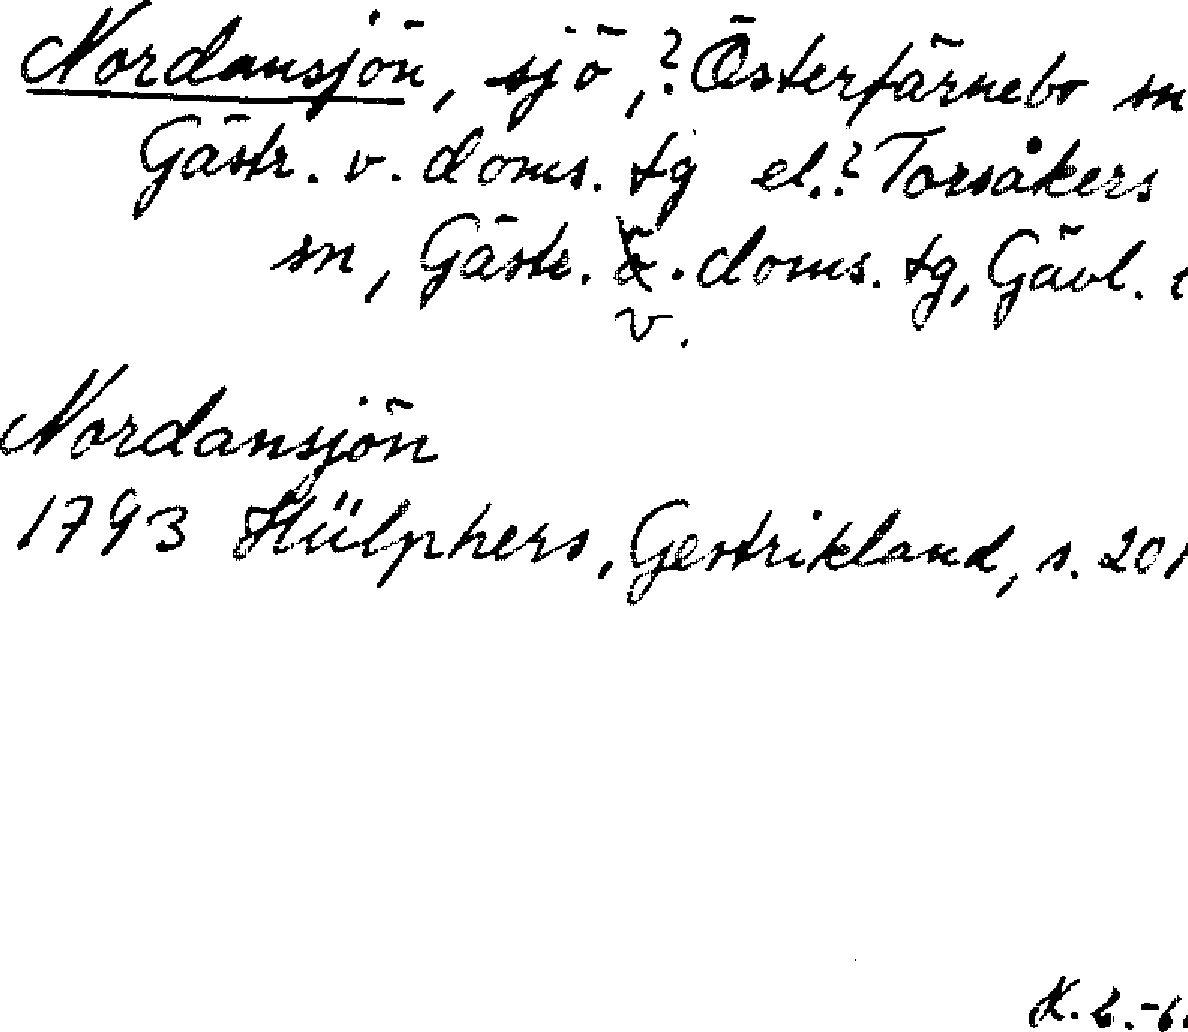 Nordansjön, sjö, ? Österfärnebo sn
Gästr. v. doms. tg el. ? Torsåkers
sn, Gästr. ö. doms. tg, Gävl.
v.
Nordansjön
1793 Hülphers, Gestrikland, s. 201